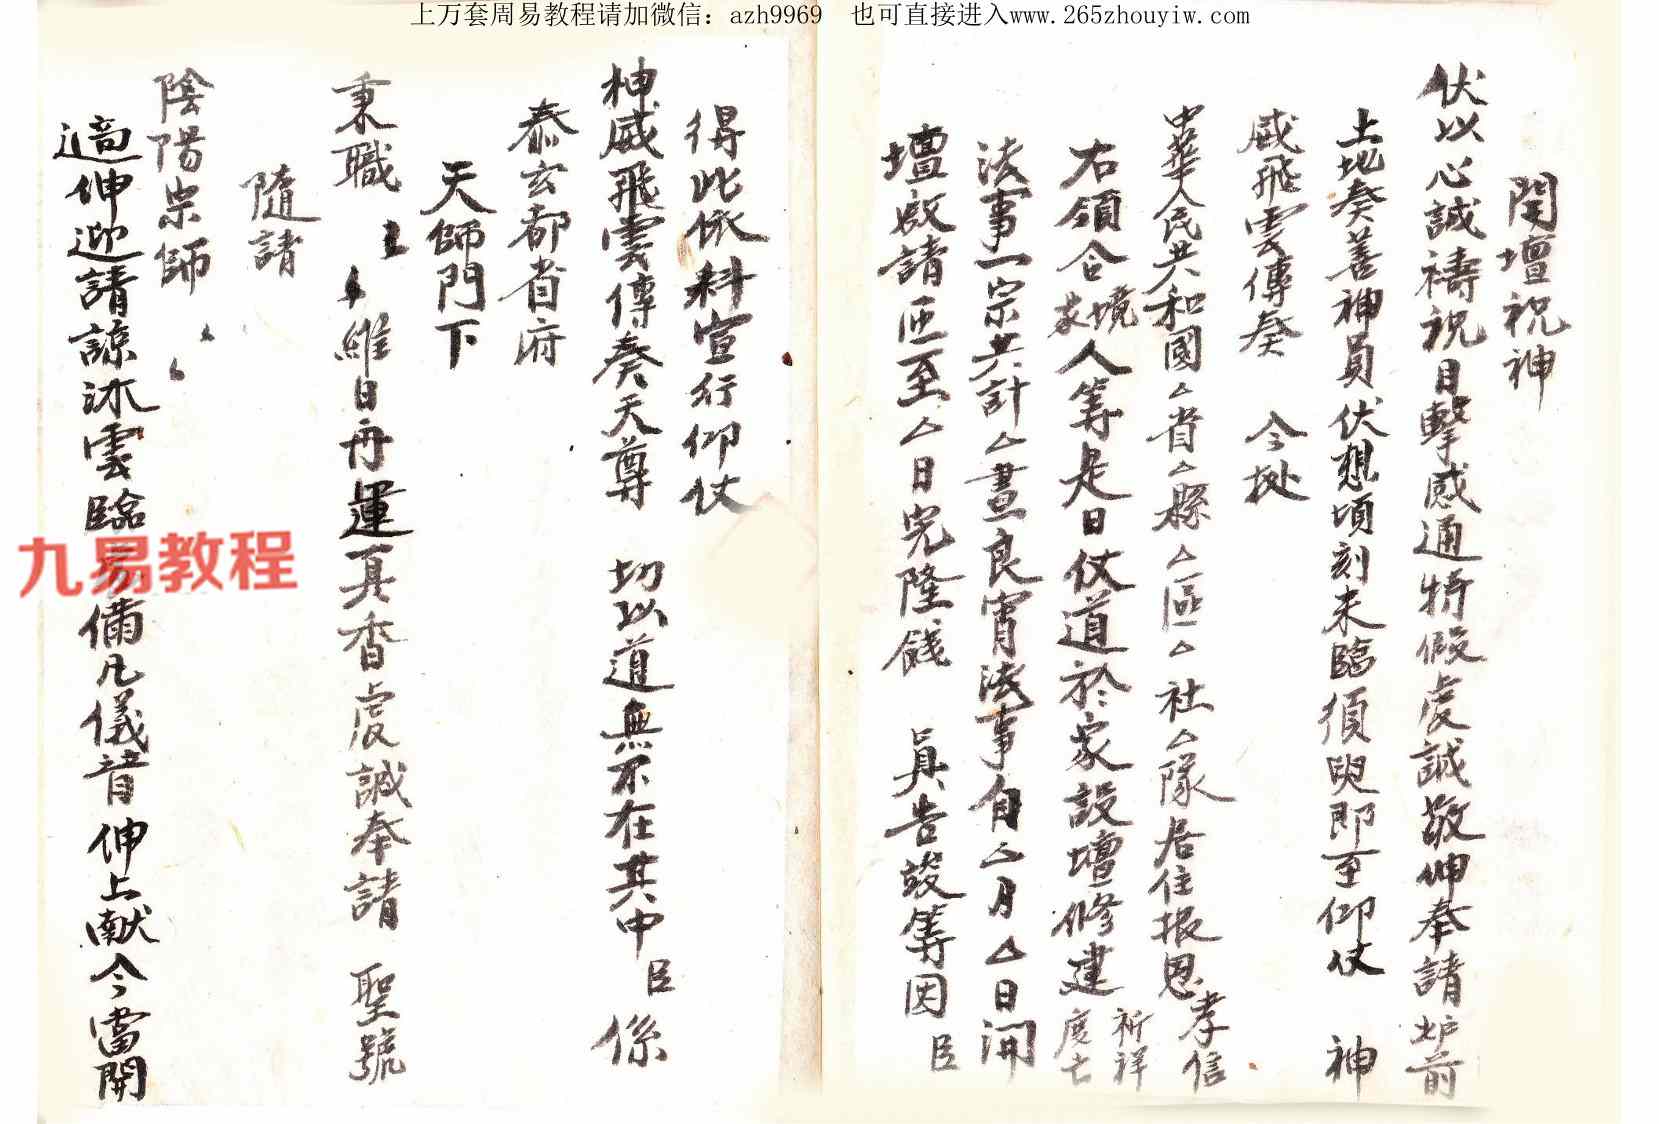 上万套周易教程请加微信：azh9969　也可直接进入www.265zhouyiw.com
開壇祝神
伏以心誠禱祝目擊感通特假虔誠敬伸奉請炉前
土地奏善神員伏想頃刻来臨須臾即至仰仗　神
威飛雲傳奏　今拠
中華人民共和國△省△縣△區△社△隊居住报恩孝信
右領合境家人等是日仗道於家設壇修建祈祥度亡
法事一宗共計△晝良宵法事自△月△日開
壇啟請迊至△日完隆餞　具告竣等因　臣
得此依科宣行仰仗
神威飛雲傳奏天尊　切以道無不在其中臣係
泰玄都省府
天師門下
秉職　維日再運真香虔誠奉請　聖號
隨請
陰陽宗師
適伸迎請諒沐雲臨　備凡儀音　伸上献今當開
九易教程